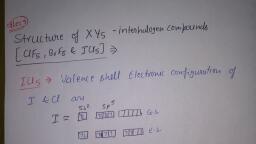 Structure of XY5 - interhalogen compounds
[ClF5, BrF5 & ICl5] ⇒
ICl5 ⇒ Valence shell Electronic configuration of
I & Cl are
5s² 5p⁵
I = G.S
E.S